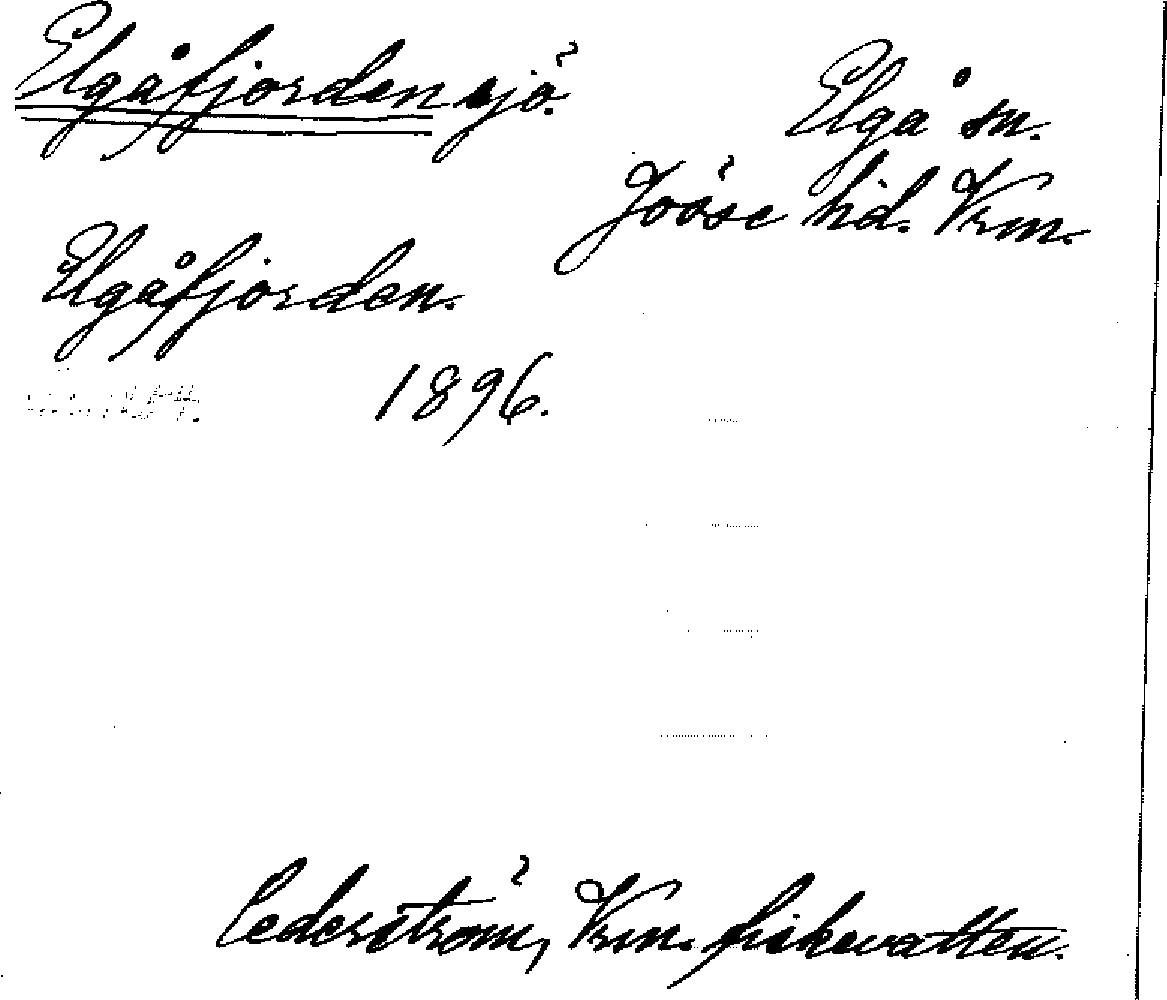 Elgåfjorden sjö.
Elgå sn.
Jösse hd. Vrm.
Elgåfjorden.
1896.
Cederström, Vrm. fiskevatten.